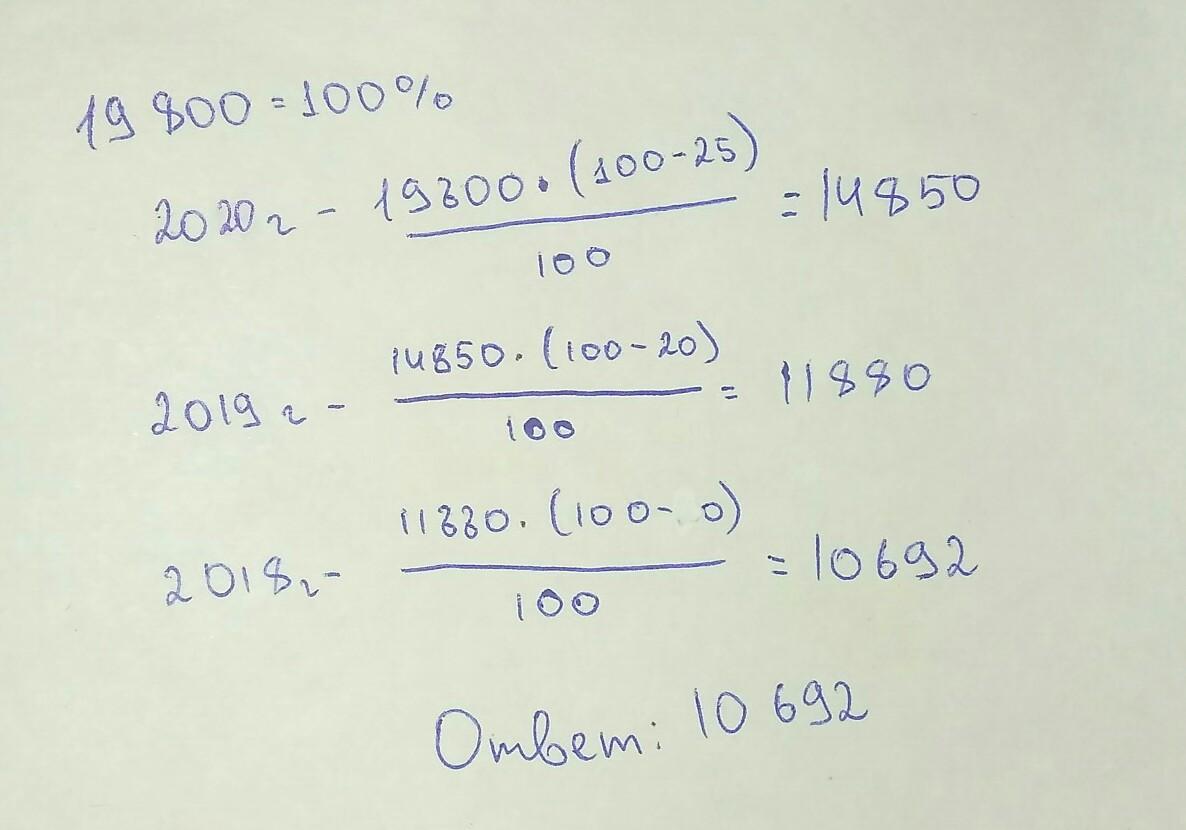 19 800 = 100%
2020г - 19800 · (100-25) / 100 = 14850
2019г - 14850 · (100-20) / 100 = 11880
2018г - 11880 · (100- 0) / 100 = 10692
Ответ: 10 692